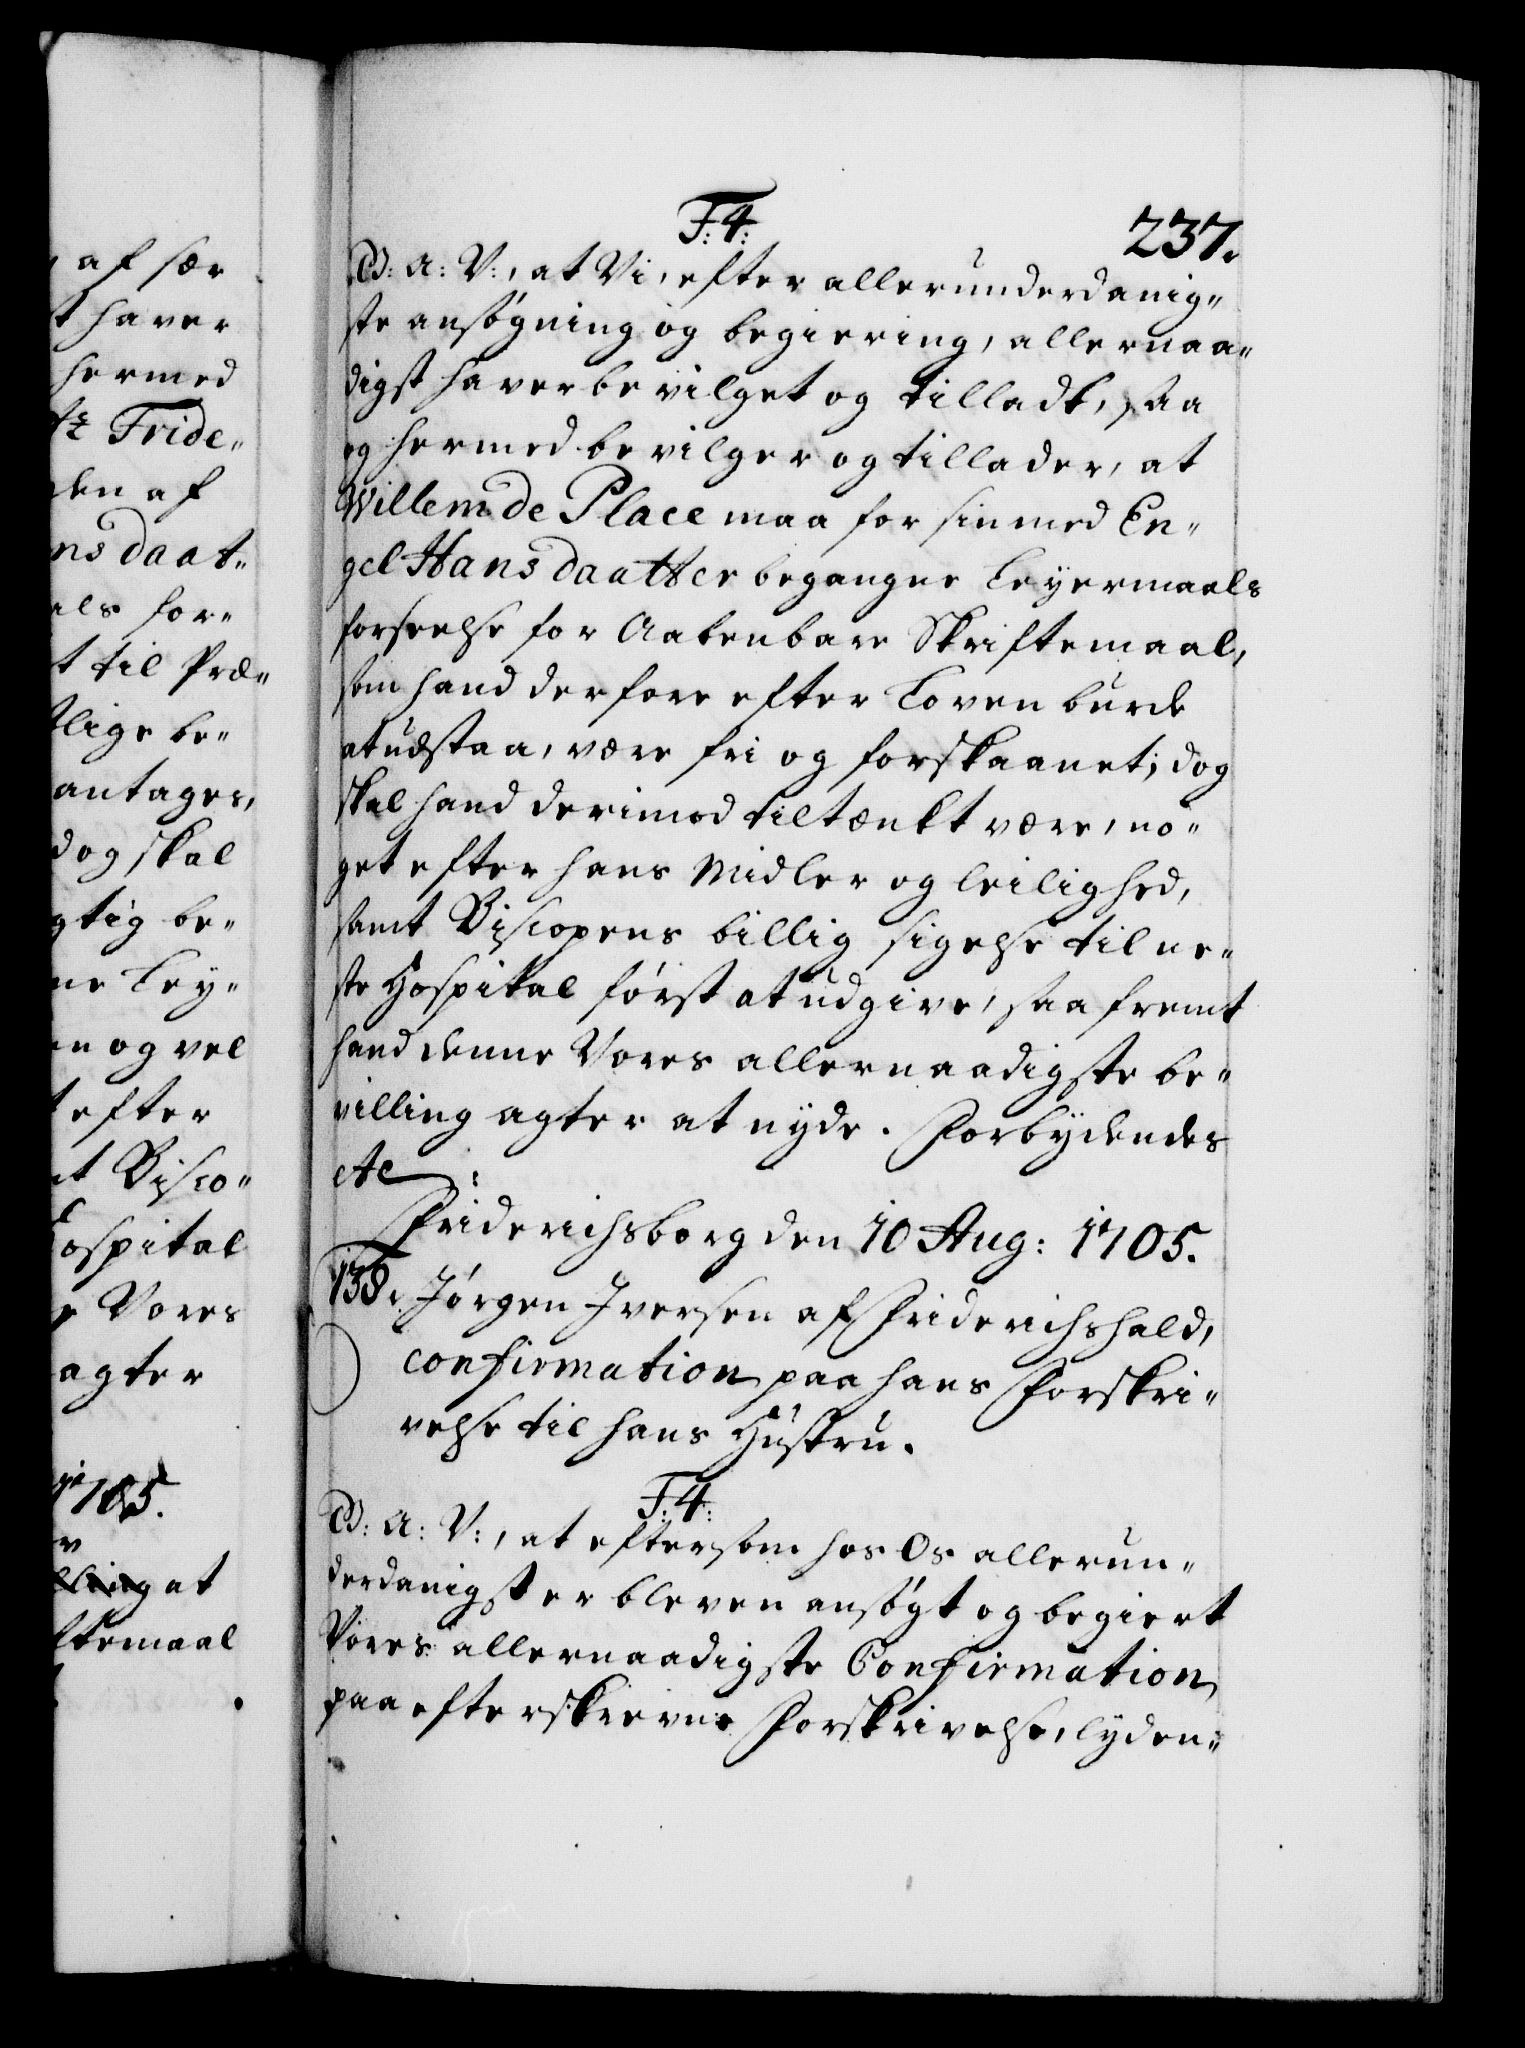 af sær
t haver
hermed
Fride„
den af
ns daat„
als for„
t til Præ„
lige be„
antages,
dog skal
gtig be„
ne Ley„
en og vel
t efter
nt Bisco„
ospital
e Vores
agter
1705.
at
ftemaal
F: 4:
237.
G: A: V:, at Vi, efter allerunderdanig„
ste ansøgning og begiering, allernaa„
digst haver bevilget og tilladt, saa
og hermed bevilger og tillader, at
Willem de Place maa for sin med En„
gel Hans daatter begangne Leyermaals
forseelse for Aabenbare Skriftemaal,
som hand derfore efter Loven burde
at udstaa, være fri og forskaanet; dog
skal hand derimod tiltænkt være, no„
get efter hans Midler og leilighed,
samt Biscopens billig sigelse til ne„
ste Hospital først at udgive, saafremt
hand denne Vores allernaadigste be„
villing agter at nyde. Forbydendes
etc:
Friderichsborg den 10 Aug: 1705.
138. Jørgen Iversen af Friderichshald,
confirmation paa hans Forskri„
velse til hans Hustru.
F: 4:
G: A: V:, at eftersom hos Os allerun„
derdanigst er bleven ansøgt og begiert
Vores allernaadigste Confirmation
paa efterskrevne Forskrivelse, lyden„